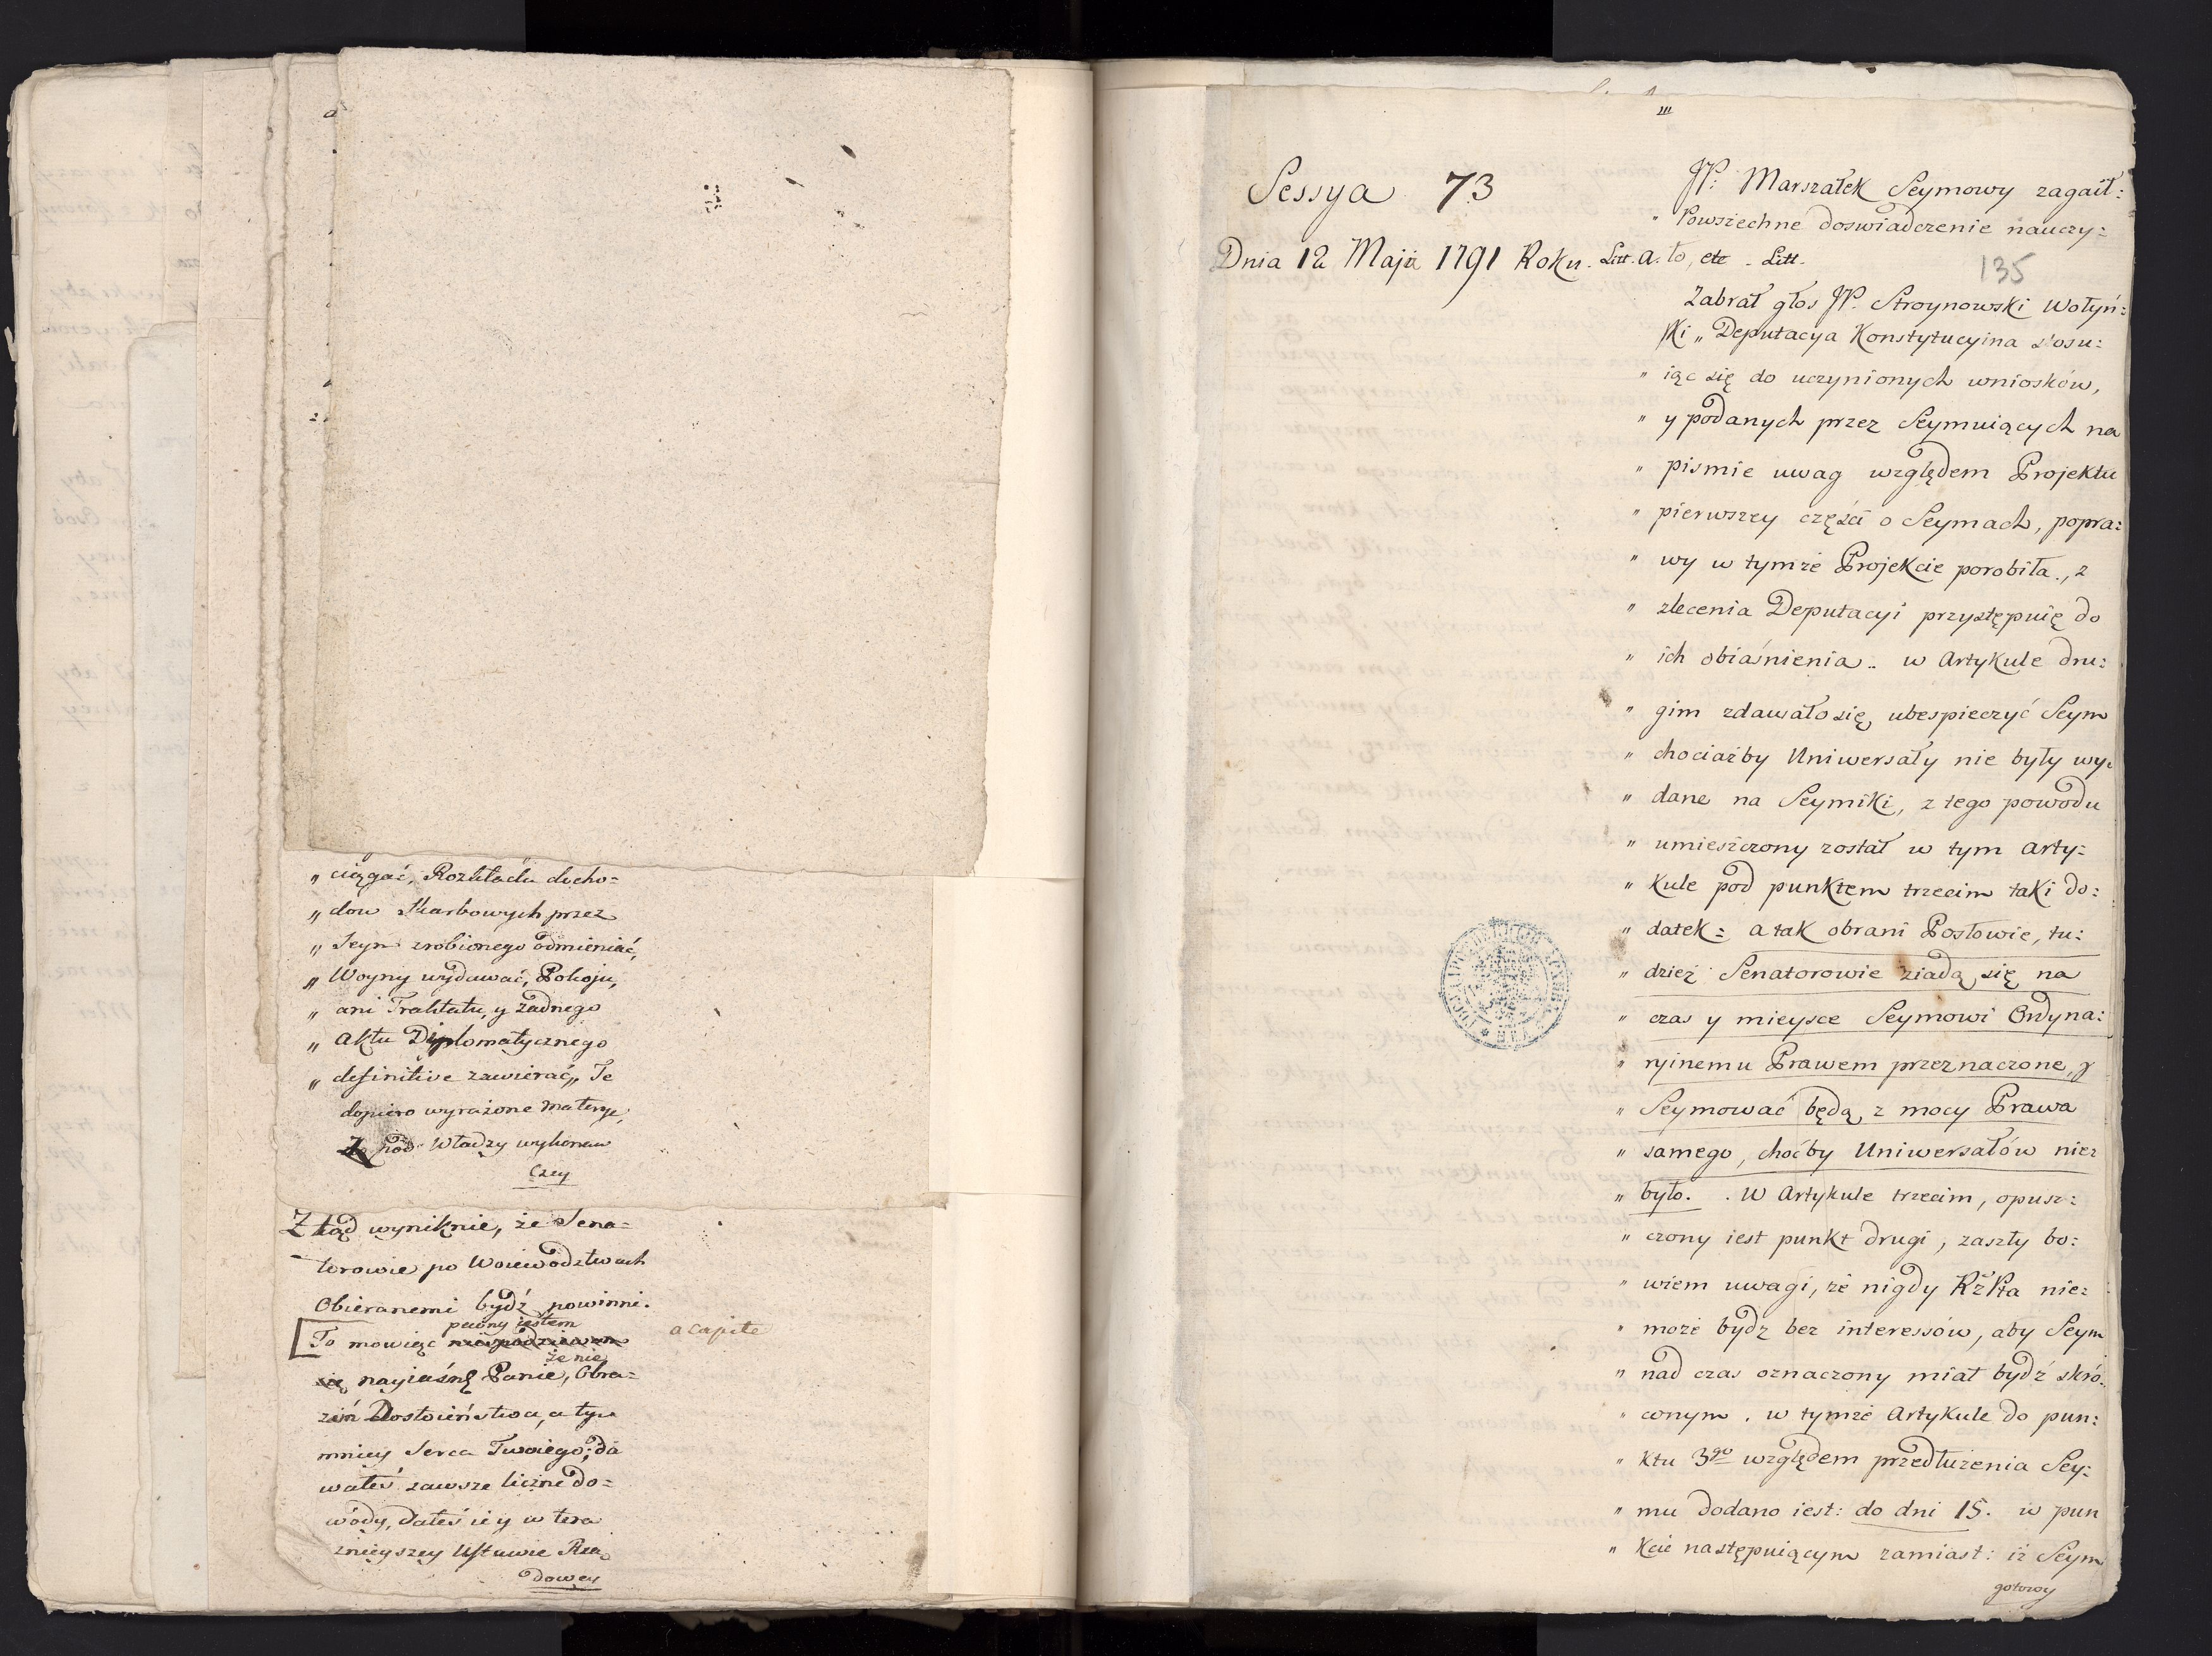 „ ciągać, Rozkładu docho=
„ dow Skarbowych przez
„ Seym zrobionego odmieniać,
„ Woyny wydawać, Pokoju,
„ ani Traktatu, y żadnego
„ Aktu Diplomatycznego
„ definitive zawierać„ Te
dopiero wyrażone materye,
pod Władzy wykonaw
czey
Ztąd wyniknie, że Sena=
torowie po Woiewodztwach
Obieranemi bydź powinni.
pewny iestem
To mowiąc
a capite
że nie
się nayiaśnę Panie, Obra=
żin Dostoieństwa, a tym
mniey Serca Twoiego; da
wałeś zawsze liczne do=
wódy, dałeś iey w tera
znieyszey Ustawie Rzą
dowey
III
Sessya 73
Dnia 12 Maja 1791 Roku.
JP: Marszałek Seymowy zagaił:
„ Powszechne doswiadczenie nauczy=
Litt. a. ło, etc - Litt.
135
Zabrał głos JP. Stroynowski Wołyń=
ski „ Deputacya Konstytucyina stosu=
„ iąc się do uczynionych wniosków,
„ y podanych przez Seymuiących na
„ pismie uwag względem Projektu
„ pierwszey części o Seymach, popra=
„ wy w tymże Projekcie porobiła., z
„ zlecenia Deputacyi przystępuię do
„ ich obiaśnienia.. w Artykule dru=
„ gim zdawało się, ubespieczyć Seym
„ chociażby Uniwersały nie były wy=
„ dane na Seymiki, z tego powodu
„ umieszczony został w tym Arty=
„ kule pod punktem trzecim taki do=
„ datek = a tak obrani Posłowie, tu=
„ dzież Senatorowie ziadą się na
„ czas y mieysce Seymowi Ordyna=
„ ryinemu Prawem przeznaczone, y
„ Seymować będą, z mocy Prawa
„ samego, choćby Uniwersałów nie=
„ było. . W Artykule trzecim, opusz=
„ czony iest punkt drugi, zaszły bo=
„ wiem uwagi, że nigdy RzPta nie=
„ może bydz bez interessów, aby Seym
„ nad czas oznaczony miał bydź skró=
„ conym. w tymże Artykule do pun=
„ ktu 3go względem przedłużenia Sey=
„ mu dodano iest: do dni 15. w pun
„ kcie następuiącym zamiast: iż Seym
gotowy